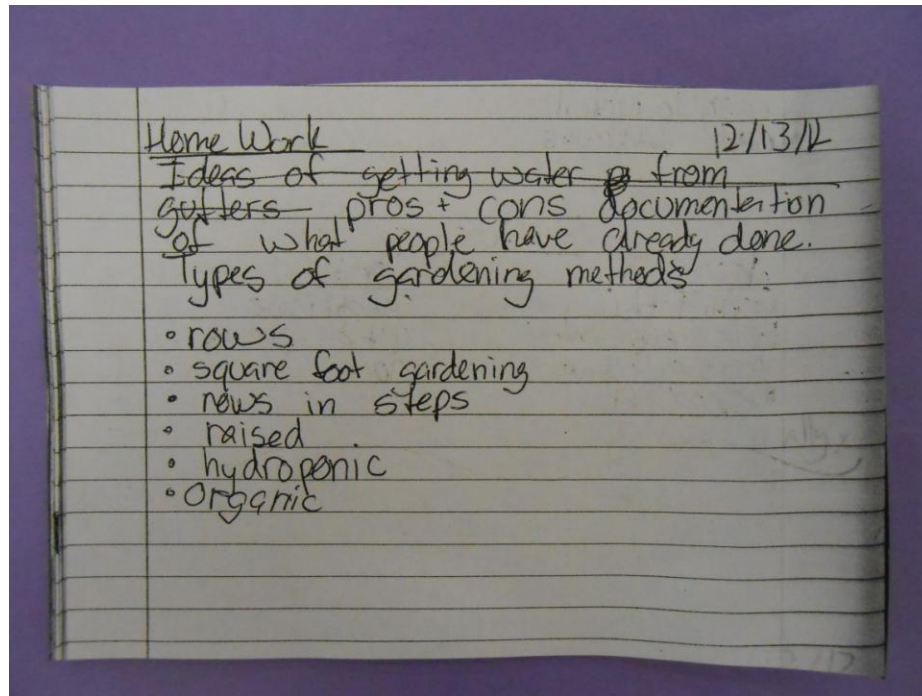 Home Work 12/13/12
Ideas of getting water from
gutters pros + cons documentation
of what people have already done.
Types of gardening methods
• rows
• square foot gardening
• rows in steps
• raised
• hydroponic
• Organic